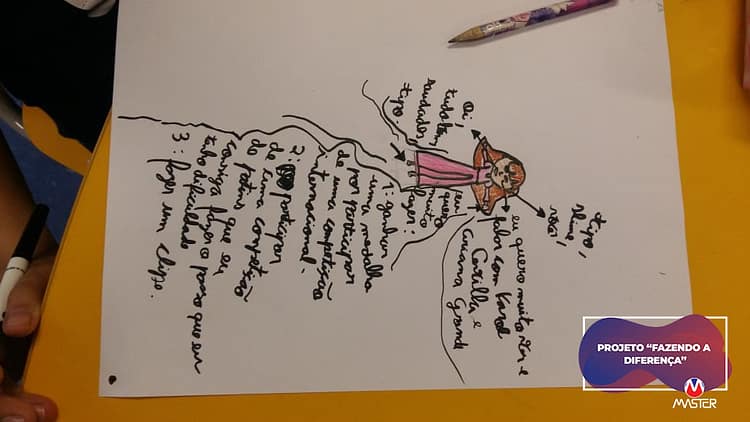 Oi,
tudo bem,
saudades,
tipo..
tipo,
slime,
eu quero muito ver e
falar com Karol
e
Ariana Grande
eu
quero
muito
fazer:
1: ganhar
uma medalha
por participar
de uma competição
internacional.
2: participar
de uma competição
de patins que eu
consiga fazer o passo que eu
dificuldade
3: fazer um clipe.
PROJETO "FAZENDO A
DIFERENÇA"
MASTER